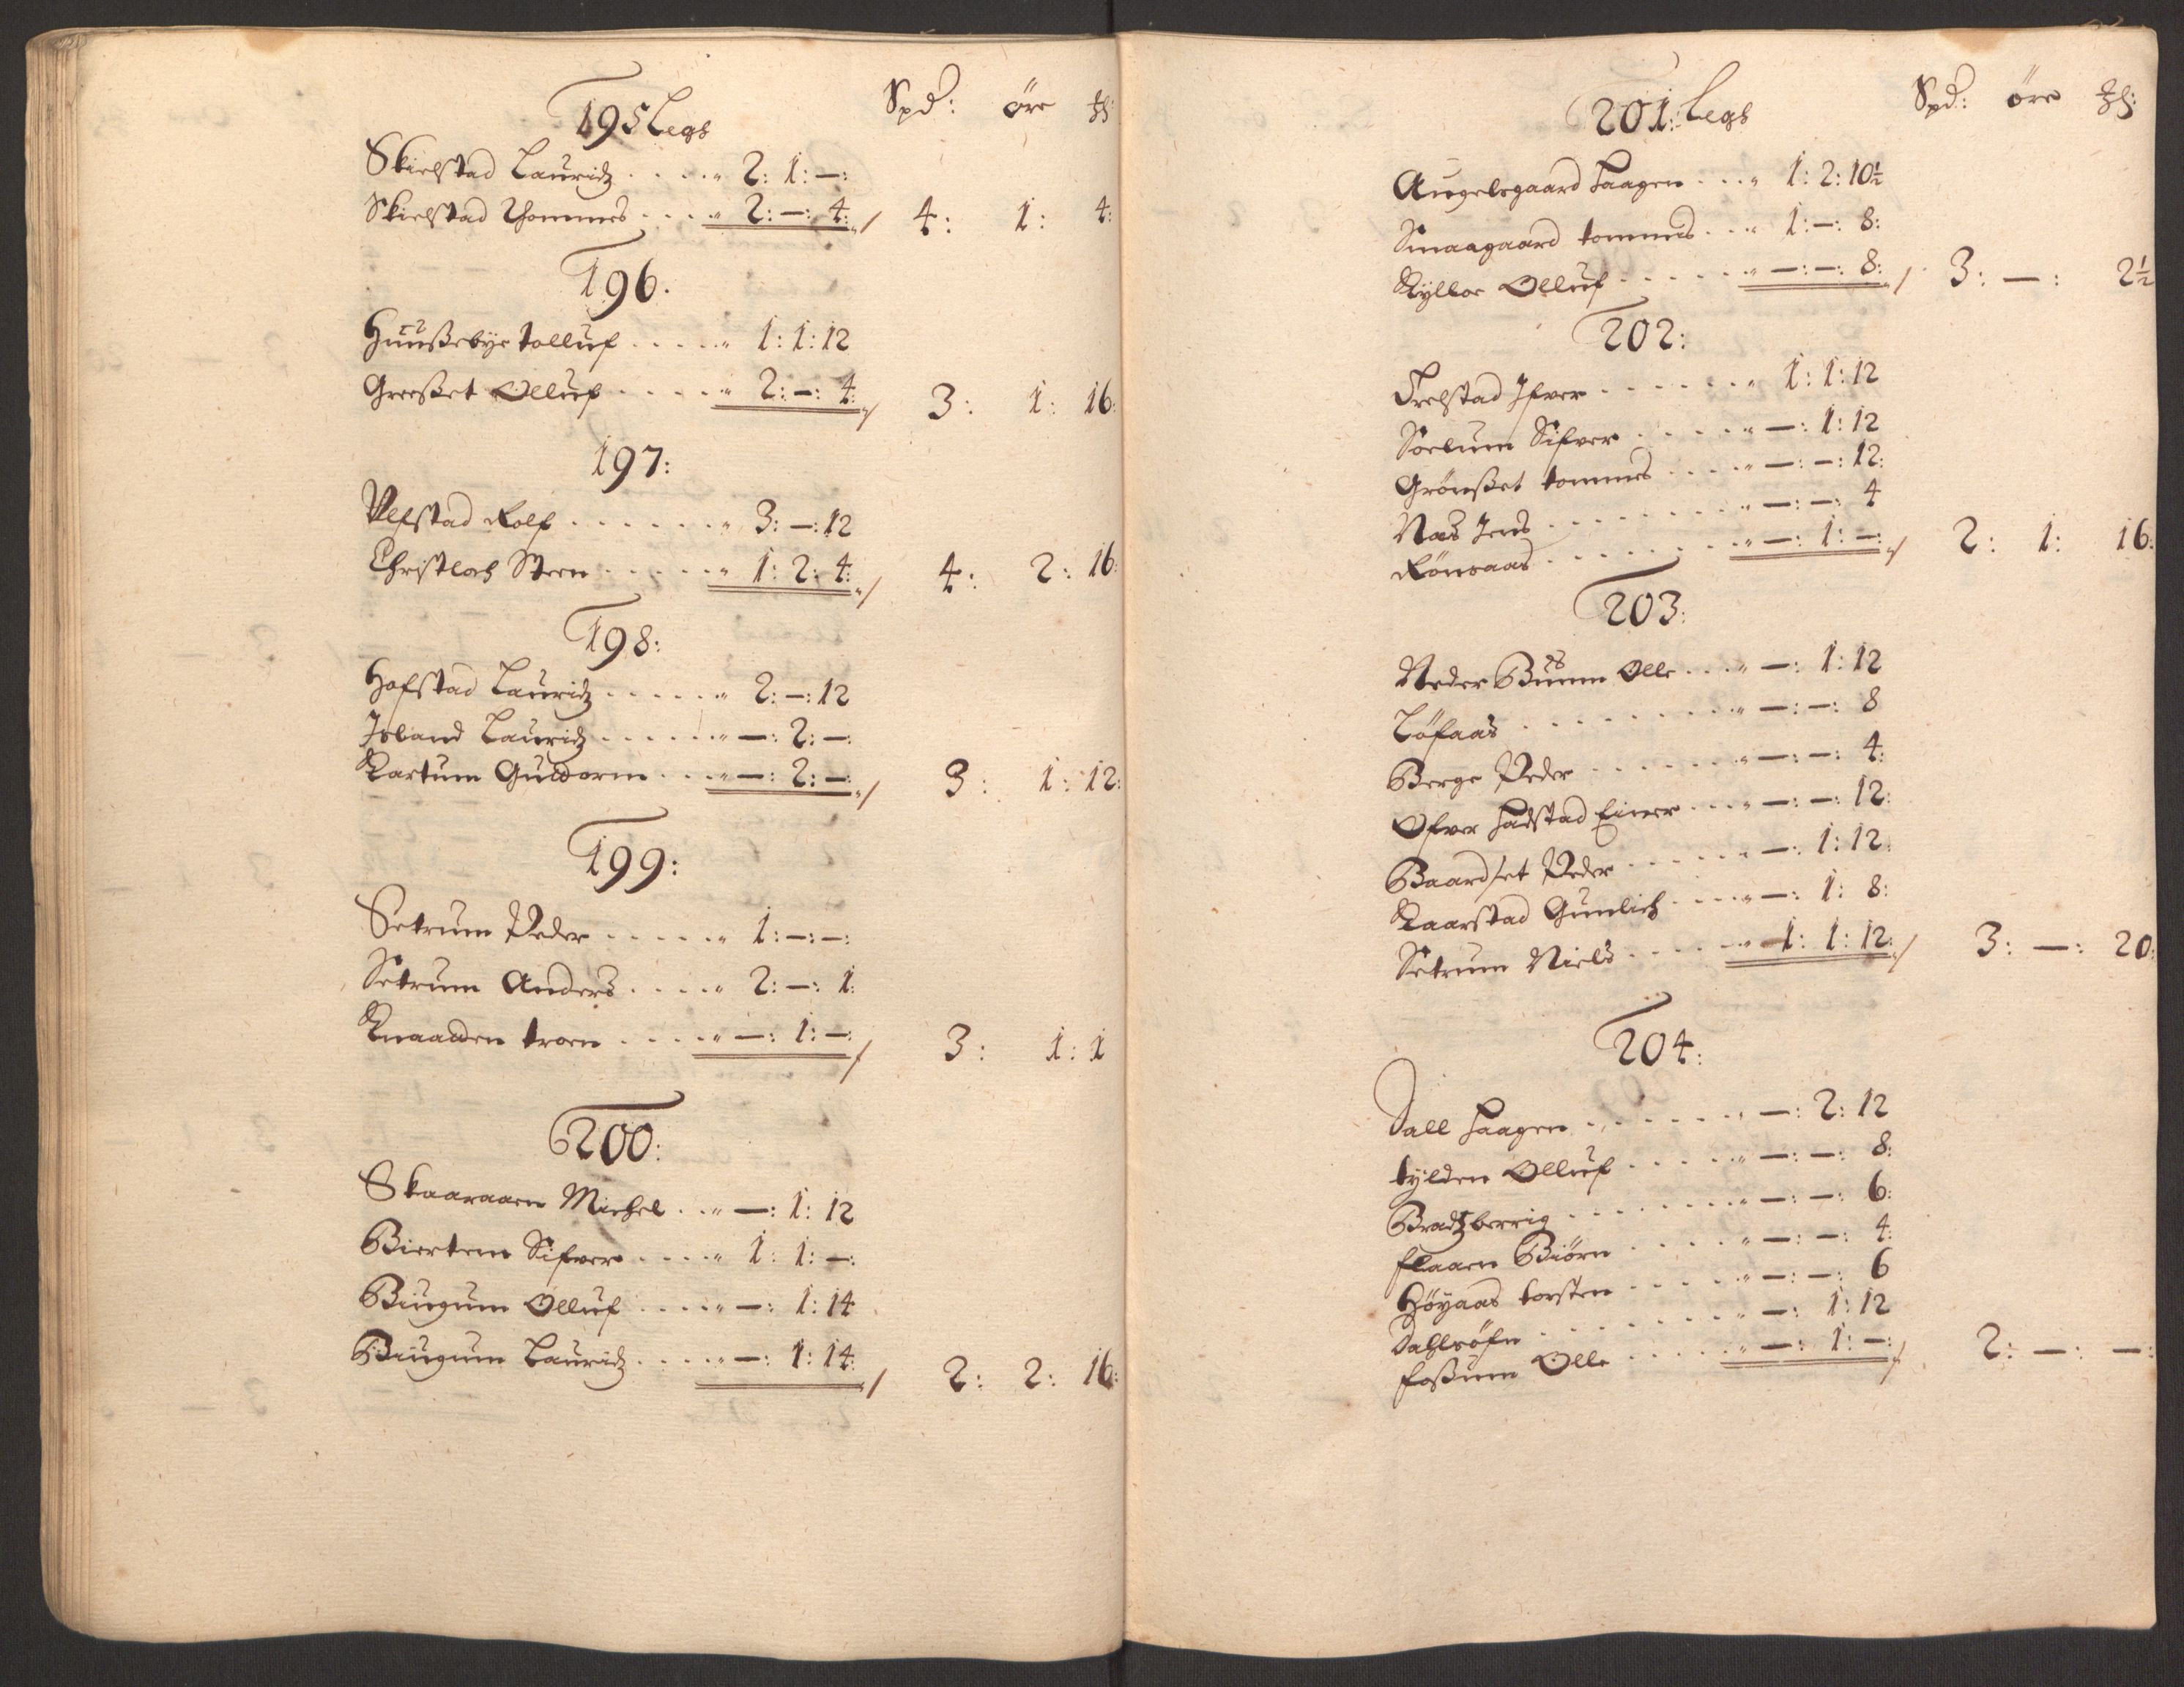 195 Legs Spd: öre
Skielstad Lauridz . . . . 2: 1: —:
Skielstad Thommes . . . . 2: —: 4: / 4: 1: 4:
196.
Huußebye tolluf . . . . . 1: 1: 12
Greeßet Olluf . . . . . 2: —: 4: / 3: 1: 16:
197:
Ulfstad Rolf . . . . . . 3: —: 12
Christloch Steen . . . . . 1: 2: 4: / 4: 2: 16:
198:
Hofstad Lauridz . . . . . 2: —: 12
Jsland Lauridz . . . . . —: 2: —:
Kartum Guldorm . . . . —: 2: —: / 3: 1: 12:
199:
Setrum Peder . . . . . 1: —: —:
Setrum Anders . . . . 2: —: 1:
Knaadden troen . . . . —: 1: —: / 3: 1: 1
200:
Skaaraaen Michel . . —: 1: 12
Biertem Sifver . . . . 1: 1: —:
Biugum Olluf . . . . —: 1: 14
Biugum Lauridz . . . . —: 1: 14: / 2: 2: 16:
201: Legs Spd: öre
Augelsgaard Haagen . . . 1: 2: 10½
Smaagaard tommes . . . 1: —: 8:
Kylloe Olluf . . . . . —: —: 8: / 3: —: 2½
202:
Trelstad Jfver . . . . . . 1: 1: 12
Soelum Sifver . . . . . —: 1: 12
Grönßet tommes . . . . —: —: 12:
Nas Jens . . . . . . . . —: —: 4
Rönsaas . . . . . . . . —: 1: —: / 2: 1: 16:
203:
Neder Buum Olle . . . —: 1: 12
Löfaas . . . . . . . . —: —: 8
Berge Peder . . . . . . —: —: 4:
Ofver Hadstad Einer . . . —: —: 12:
Baardset Peder . . . . . —: 1: 12:
Kaarstad Gunlich . . . . —: 1: 8:
Setrum Niels . . . . . 1: 1: 12: / 3: —: 20:
204:
Dall Haagen . . . . . . —: 2: 12
tylden Olluf . . . . . —: —: 8:
Bradtzberrig . . . . . . . —: —: 6:
flaaen Biörn . . . . . —: —: 4:
Höyaas torsten . . . . . —: —: 6
Dahlsöfn . . . . . . . . —: 1: 12
foßum Olle . . . . . —: 1: —: / 2: —: —: